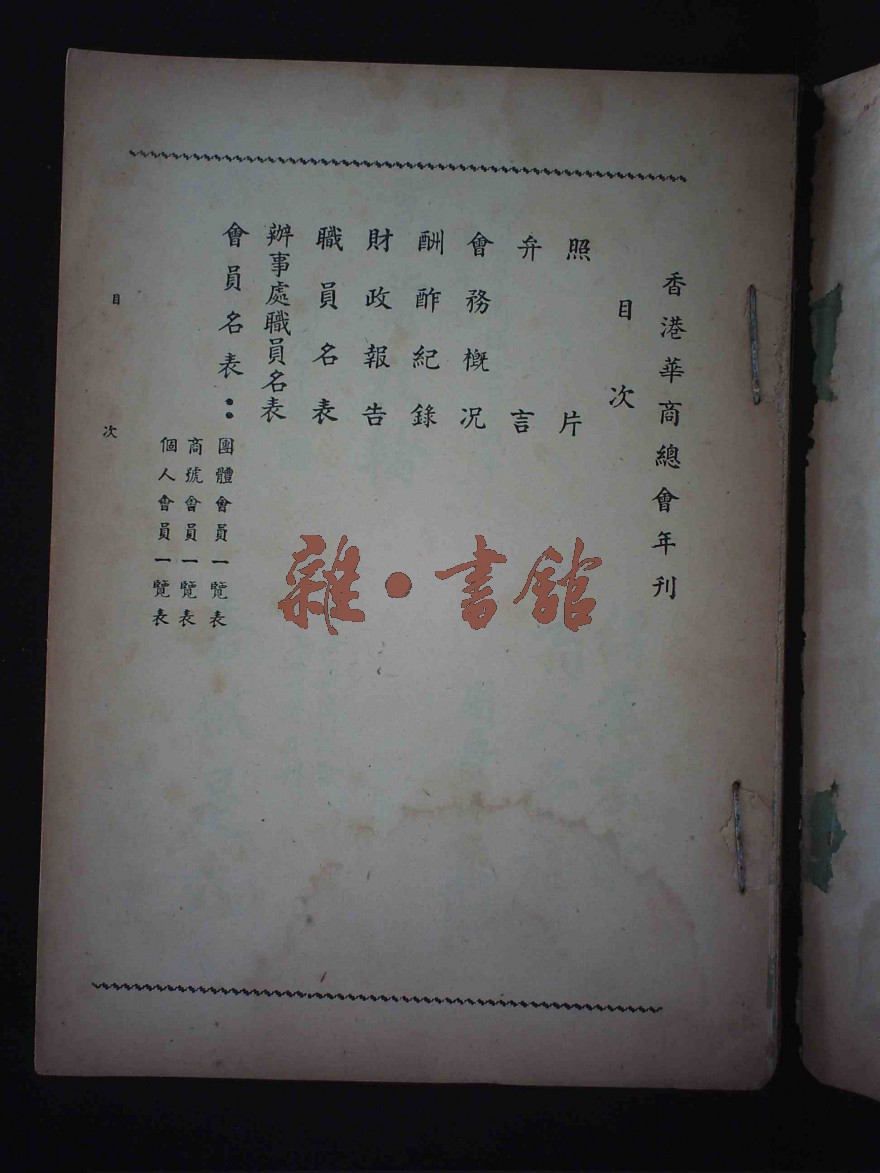 香港華商總會年刊
目次
照片
弁言
會務概况
酬酢紀錄
財政報告
職員名表
辦事處職員名表
會員名表：
團體會員一覽表
商號會員一覽表
個人會員一覽表
目次
雜·書館